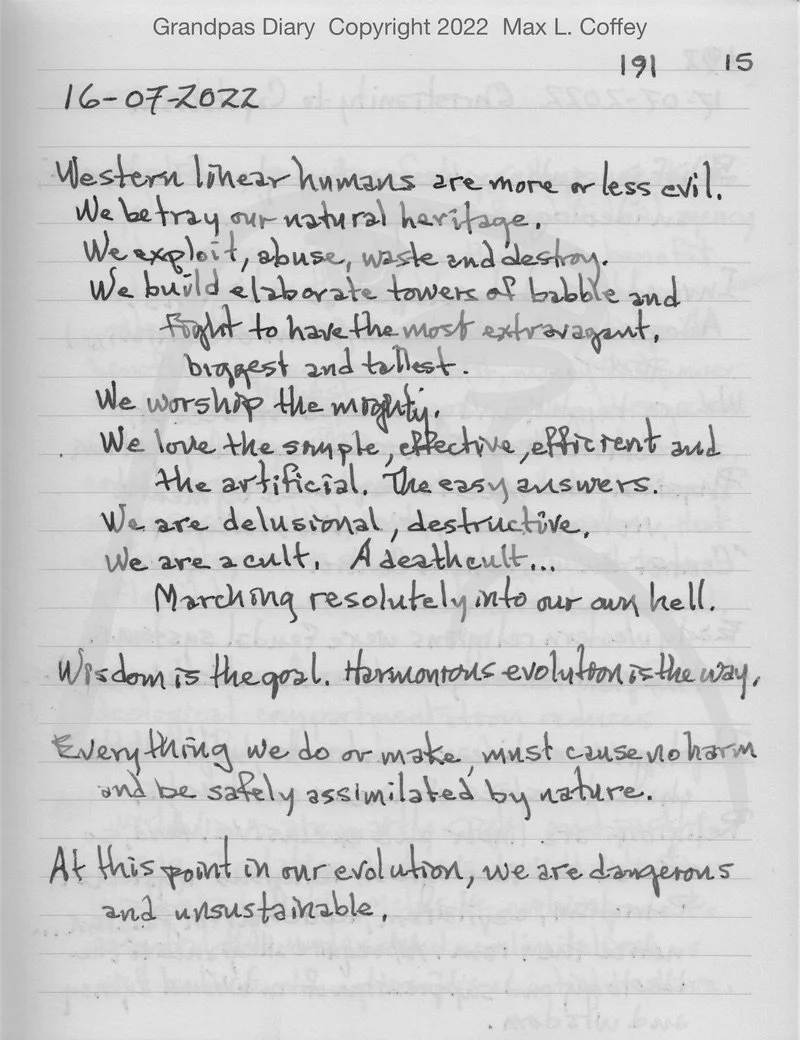 Grandpas Diary Copyright 2022 Max L. Coffey
191 15
16-07-2022
Western linear humans are more or less evil.
We betray our natural heritage.
We exploit, abuse, waste and destroy.
We build elaborate towers of babble and
fight to have the most extravagant,
biggest and tallest.
We worship the mighty.
We love the simple, effective, efficient and
the artificial. The easy answers.
We are delusional, destructive.
We are a cult. A death cult...
Marching resolutely into our own hell.
Wisdom is the goal. Harmonious evolution is the way.
Everything we do or make, must cause no harm
and be safely assimilated by nature.
At this point in our evolution, we are dangerous
and unsustainable.